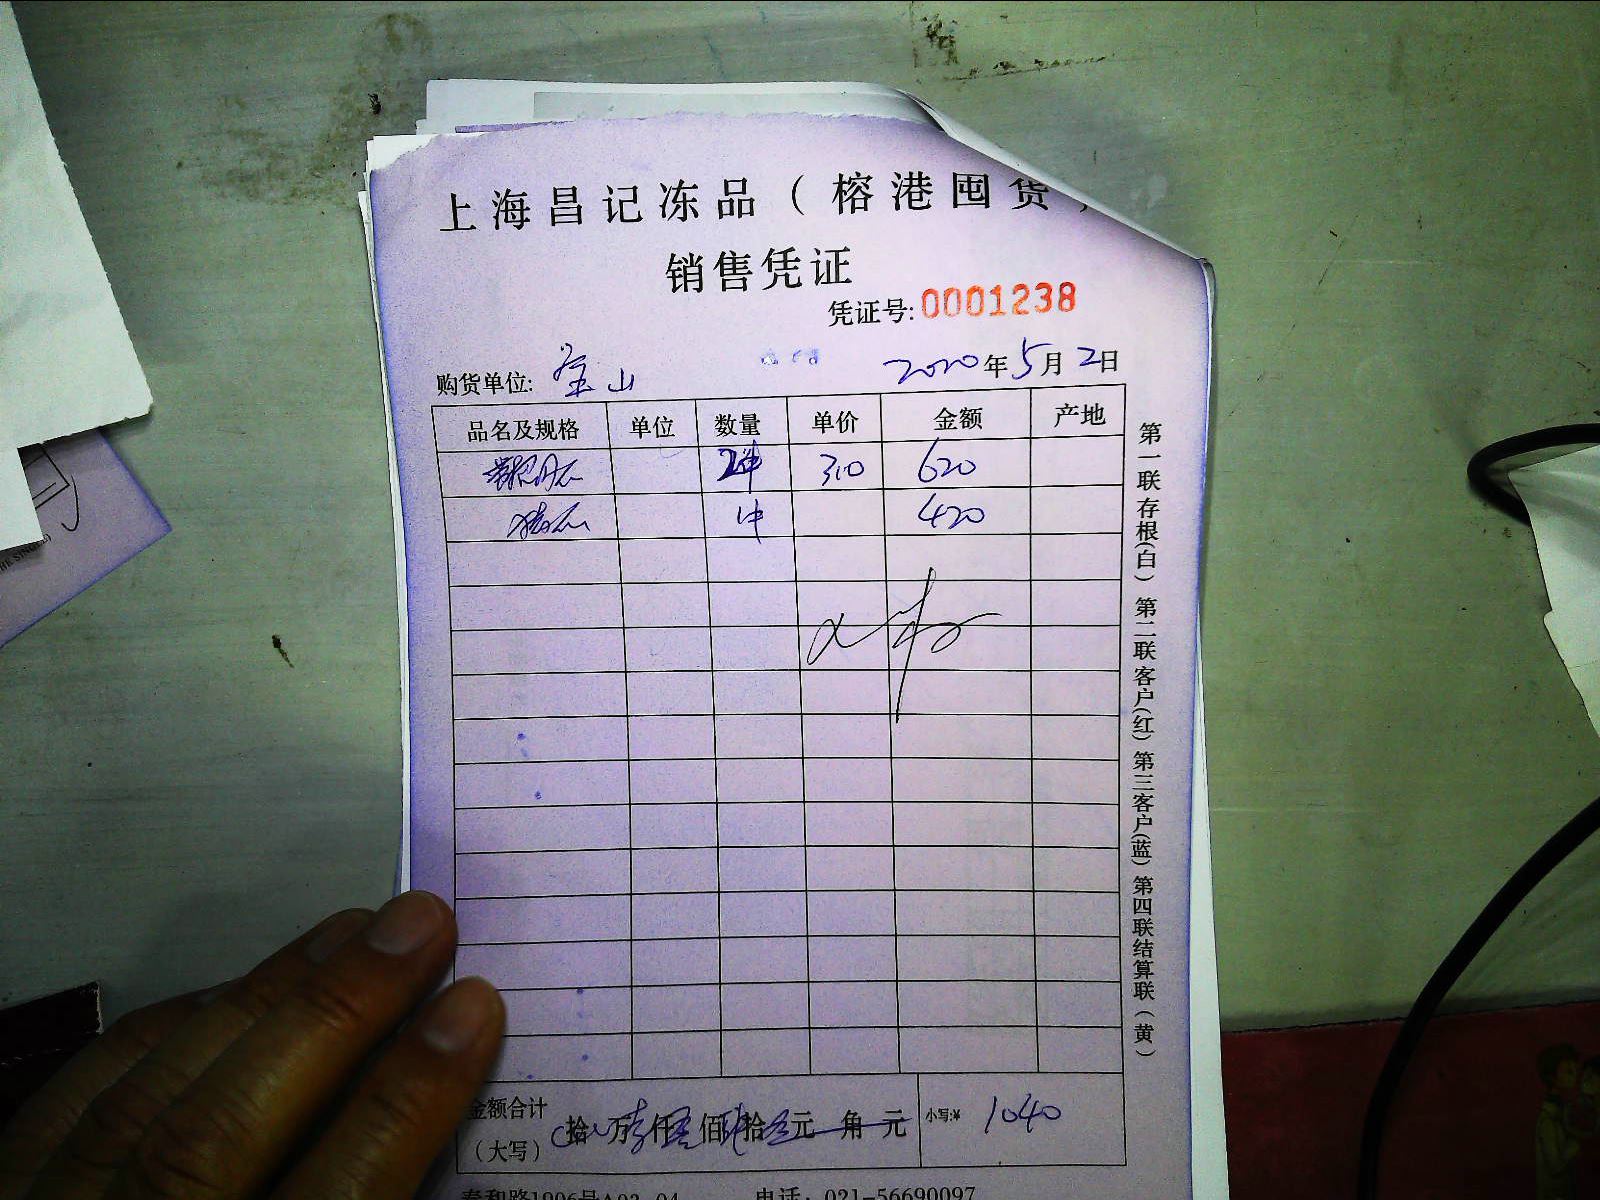 上海昌记冻品（榕港囤货）
销售凭证
凭证号: 0001238
购货单位: 宝山 2020年5月2日
品名及规格 单位 数量 单价 金额 产地
2件 310 620
1件 420
金额合计
（大写） 拾 万 仟 佰 拾 元 角 元 小写:¥ 1040
泰和路1996号A03-04 电话: 021-56690097
第一联存根(白) 第二联客户(红) 第三客户(蓝) 第四联结算联(黄)